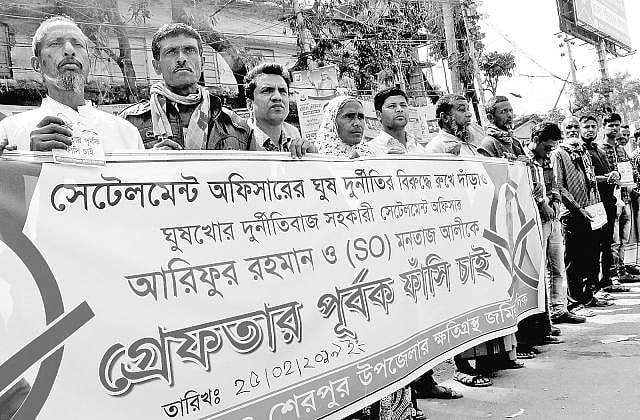 সেটেলমেন্ট অফিসারের ঘুষ দুর্নীতির বিরুদ্ধে রুখে দাঁড়াও
ঘুষখোর দুর্নীতিবাজ সহকারী সেটেলমেন্ট অফিসার
আরিফুর রহমান ও (SO) মনতাজ আলীকে
গ্রেফতার পূর্বক ফাঁসি চাই
তারিখঃ ২৫/০২/২০১৯ ইং
শেরপুর উপজেলার ক্ষতিগ্রস্থ জমির মালিক